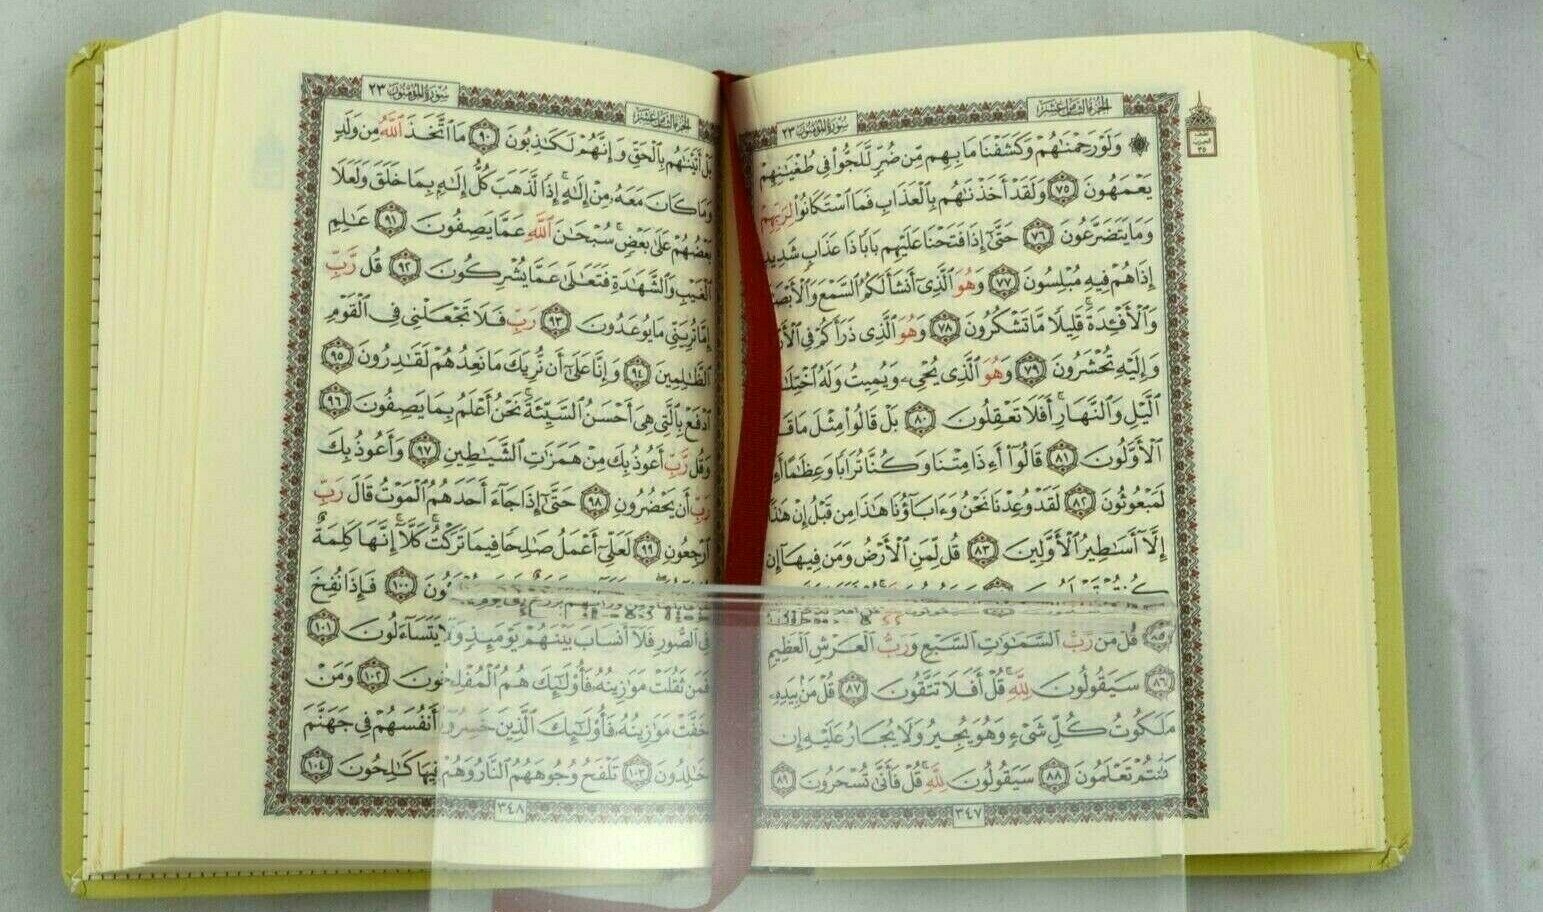 الجُزءُ الثَّامِنَ عَشَرَ سُورَةُ المُؤْمِنُونَ ٢٣
۞ وَلَوْ رَحِمْنَٰهُمْ وَكَشَفْنَا مَا بِهِم مِّن ضُرٍّ لَّلَجُّوا۟ فِى طُغْيَٰنِهِمْ
يَعْمَهُونَ ٧٥ وَلَقَدْ أَخَذْنَٰهُم بِٱلْعَذَابِ فَمَا ٱسْتَكَانُوا۟ لِرَبِّهِمْ
وَمَا يَتَضَرَّعُونَ ٧٦ حَتَّىٰٓ إِذَا فَتَحْنَا عَلَيْهِم بَابًا ذَا عَذَابٍ شَدِيدٍ
إِذَا هُمْ فِيهِ مُبْلِسُونَ ٧٧ وَهُوَ ٱلَّذِىٓ أَنشَأَ لَكُمُ ٱلسَّمْعَ وَٱلْأَبْصَ
وَٱلْأَفْـِٔدَةَ ۚ قَلِيلًا مَّا تَشْكُرُونَ ٧٨ وَهُوَ ٱلَّذِى ذَرَأَكُمْ فِى ٱلْأَرْ
وَإِلَيْهِ تُحْشَرُونَ ٧٩ وَهُوَ ٱلَّذِى يُحْىِۦ وَيُمِيتُ وَلَهُ ٱخْتِلَٰ
ٱلَّيْلِ وَٱلنَّهَارِ ۚ أَفَلَا تَعْقِلُونَ ٨٠ بَلْ قَالُوا۟ مِثْلَ مَا قَ
ٱلْأَوَّلُونَ ٨١ قَالُوٓا۟ أَءِذَا مِتْنَا وَكُنَّا تُرَابًا وَعِظَٰمًا أَءِ
لَمَبْعُوثُونَ ٨٢ لَقَدْ وُعِدْنَا نَحْنُ وَءَابَآؤُنَا هَٰذَا مِن قَبْلُ إِنْ هَٰذَ
إِلَّآ أَسَٰطِيرُ ٱلْأَوَّلِينَ ٨٣ قُل لِّمَنِ ٱلْأَرْضُ وَمَن فِيهَآ إِن
٨٥ قُلْ مَن رَّبُّ ٱلسَّمَٰوَٰتِ ٱلسَّبْعِ وَرَبُّ ٱلْعَرْشِ ٱلْعَظِيمِ
٨٦ سَيَقُولُونَ لِلَّهِ ۚ قُلْ أَفَلَا تَتَّقُونَ ٨٧ قُلْ مَنۢ بِيَدِهِۦ
مَلَكُوتُ كُلِّ شَىْءٍ وَهُوَ يُجِيرُ وَلَا يُجَارُ عَلَيْهِ إِن
كُنتُمْ تَعْلَمُونَ ٨٨ سَيَقُولُونَ لِلَّهِ ۚ قُلْ فَأَنَّىٰ تُسْحَرُونَ ٨٩
٣٤٧
الجُزءُ الثَّامِنَ عَشَرَ سُورَةُ المُؤْمِنُونَ ٢٣
بَلْ أَتَيْنَٰهُم بِٱلْحَقِّ وَإِنَّهُمْ لَكَٰذِبُونَ ٩٠ مَا ٱتَّخَذَ ٱللَّهُ مِن وَلَدٍ
وَمَا كَانَ مَعَهُۥ مِنْ إِلَٰهٍ ۚ إِذًا لَّذَهَبَ كُلُّ إِلَٰهٍۭ بِمَا خَلَقَ وَلَعَلَا
بَعْضُهُمْ عَلَىٰ بَعْضٍ ۚ سُبْحَٰنَ ٱللَّهِ عَمَّا يَصِفُونَ ٩١ عَٰلِمِ
ٱلْغَيْبِ وَٱلشَّهَٰدَةِ فَتَعَٰلَىٰ عَمَّا يُشْرِكُونَ ٩٢ قُل رَّبِّ
إِمَّا تُرِيَنِّى مَا يُوعَدُونَ ٩٣ رَبِّ فَلَا تَجْعَلْنِى فِى ٱلْقَوْمِ
ٱلظَّٰلِمِينَ ٩٤ وَإِنَّا عَلَىٰٓ أَن نُّرِيَكَ مَا نَعِدُهُمْ لَقَٰدِرُونَ ٩٥
ٱدْفَعْ بِٱلَّتِى هِىَ أَحْسَنُ ٱلسَّيِّئَةَ ۚ نَحْنُ أَعْلَمُ بِمَا يَصِفُونَ ٩٦
وَقُل رَّبِّ أَعُوذُ بِكَ مِنْ هَمَزَٰتِ ٱلشَّيَٰطِينِ ٩٧ وَأَعُوذُ بِكَ
رَبِّ أَن يَحْضُرُونِ ٩٨ حَتَّىٰٓ إِذَا جَآءَ أَحَدَهُمُ ٱلْمَوْتُ قَالَ رَبِّ
ٱرْجِعُونِ ٩٩ لَعَلِّىٓ أَعْمَلُ صَٰلِحًا فِيمَا تَرَكْتُ ۚ كَلَّآ ۚ إِنَّهَا كَلِمَةٌ
١٠٠ فَإِذَا نُفِخَ
فِى ٱلصُّورِ فَلَآ أَنسَابَ بَيْنَهُمْ يَوْمَئِذٍ وَلَا يَتَسَآءَلُونَ ١٠١
فَمَن ثَقُلَتْ مَوَٰزِينُهُۥ فَأُو۟لَٰٓئِكَ هُمُ ٱلْمُفْلِحُونَ ١٠٢ وَمَنْ
خَفَّتْ مَوَٰزِينُهُۥ فَأُو۟لَٰٓئِكَ ٱلَّذِينَ خَسِرُوٓا۟ أَنفُسَهُمْ فِى جَهَنَّمَ
خَٰلِدُونَ ١٠٣ تَلْفَحُ وُجُوهَهُمُ ٱلنَّارُ وَهُمْ فِيهَا كَٰلِحُونَ ١٠٤
٣٤٨